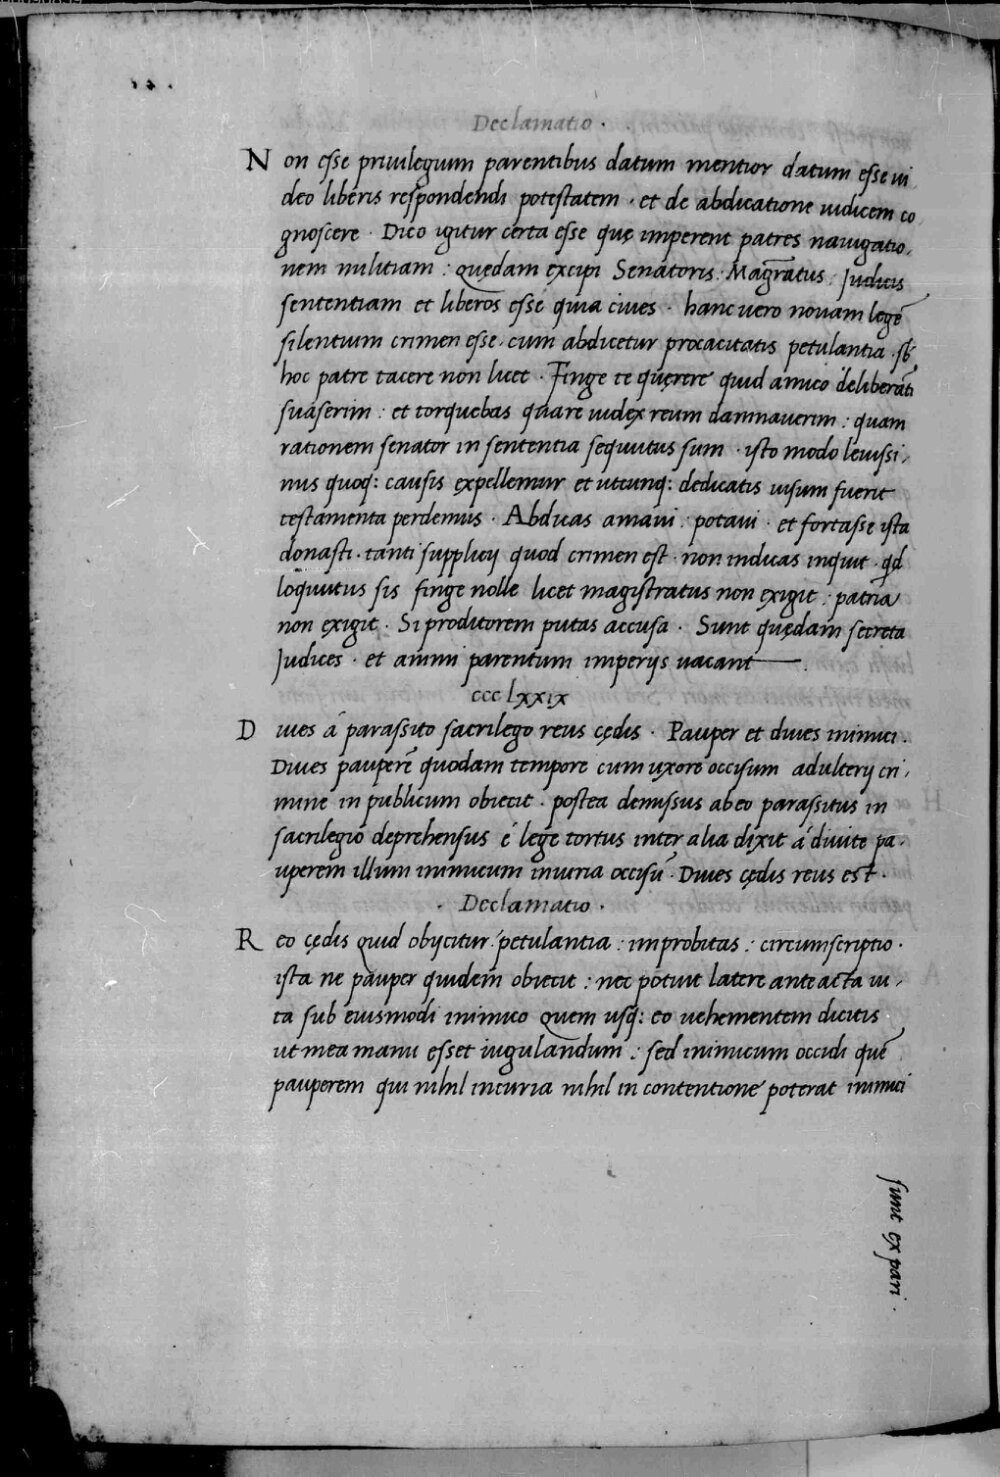 Declamatio ·
Non esse priuilegium parentibus datum mentior datum esse ui
deo liberis respondendi potestatem · et de abdicatione iudicem co
gnoscere · Dico igitur certa esse quę imperent patres nauigatio,
nem militiam : quędam excipi Senatoris : Magr̄atus : Judicis
sententiam et liberos esse quia ciues · hanc uero nouam legē
silentium crimen esse · cum abdicetur procacitatis petulantia · sb̄
hoc patre tacere non licet · Finge te quęrere quid amico deliberāti
suaserim : et torquebas quare iudex reum damnauerim : quam
rationem senator in sententia sequutus sum · isto modo leuissi,
mis quoq: causis expellemur et utcunq: dedicatis uisum fuerit
testamenta perdemus · Abdicas amaui · potaui · et fortasse ista
donasti · tanti supplicij quod crimen est · non indicas inquit · qd
loquutus sis finge nolle licet magistratus non exigit : patria
non exigit · Si proditorem putas accusa · Sunt quędam secreta
Judices · et animi parentum imperijs uacant
ccclxxix
Diues á parassito sacrilego reus cędis · Pauper et diues inimici ·
Diues pauperē quodam tempore cum uxore occisum adulterij cri,
mine in publicum obiecit · postea demissus ab eo parassitus in
sacrilegio deprehensus é lege tortus inter alia dixit á diuite pa,
uperem illum inimicum iniuria occisū · Diues cędis reus est ·
· Declamatio ·
Reo cędis quid obijcitur · petulantia : improbitas : circumscriptio ·
ista ne pauper quidem obiecit : nec potuit latere ante acta ui,
ta sub eiusmodi inimico quem usq: eo uehementem dicitis
ut mea manu esset iugulandum : sed inimicum occidi quē
pauperem qui nihil in curia nihil in contentione poterat inimici
sunt ex pari ·